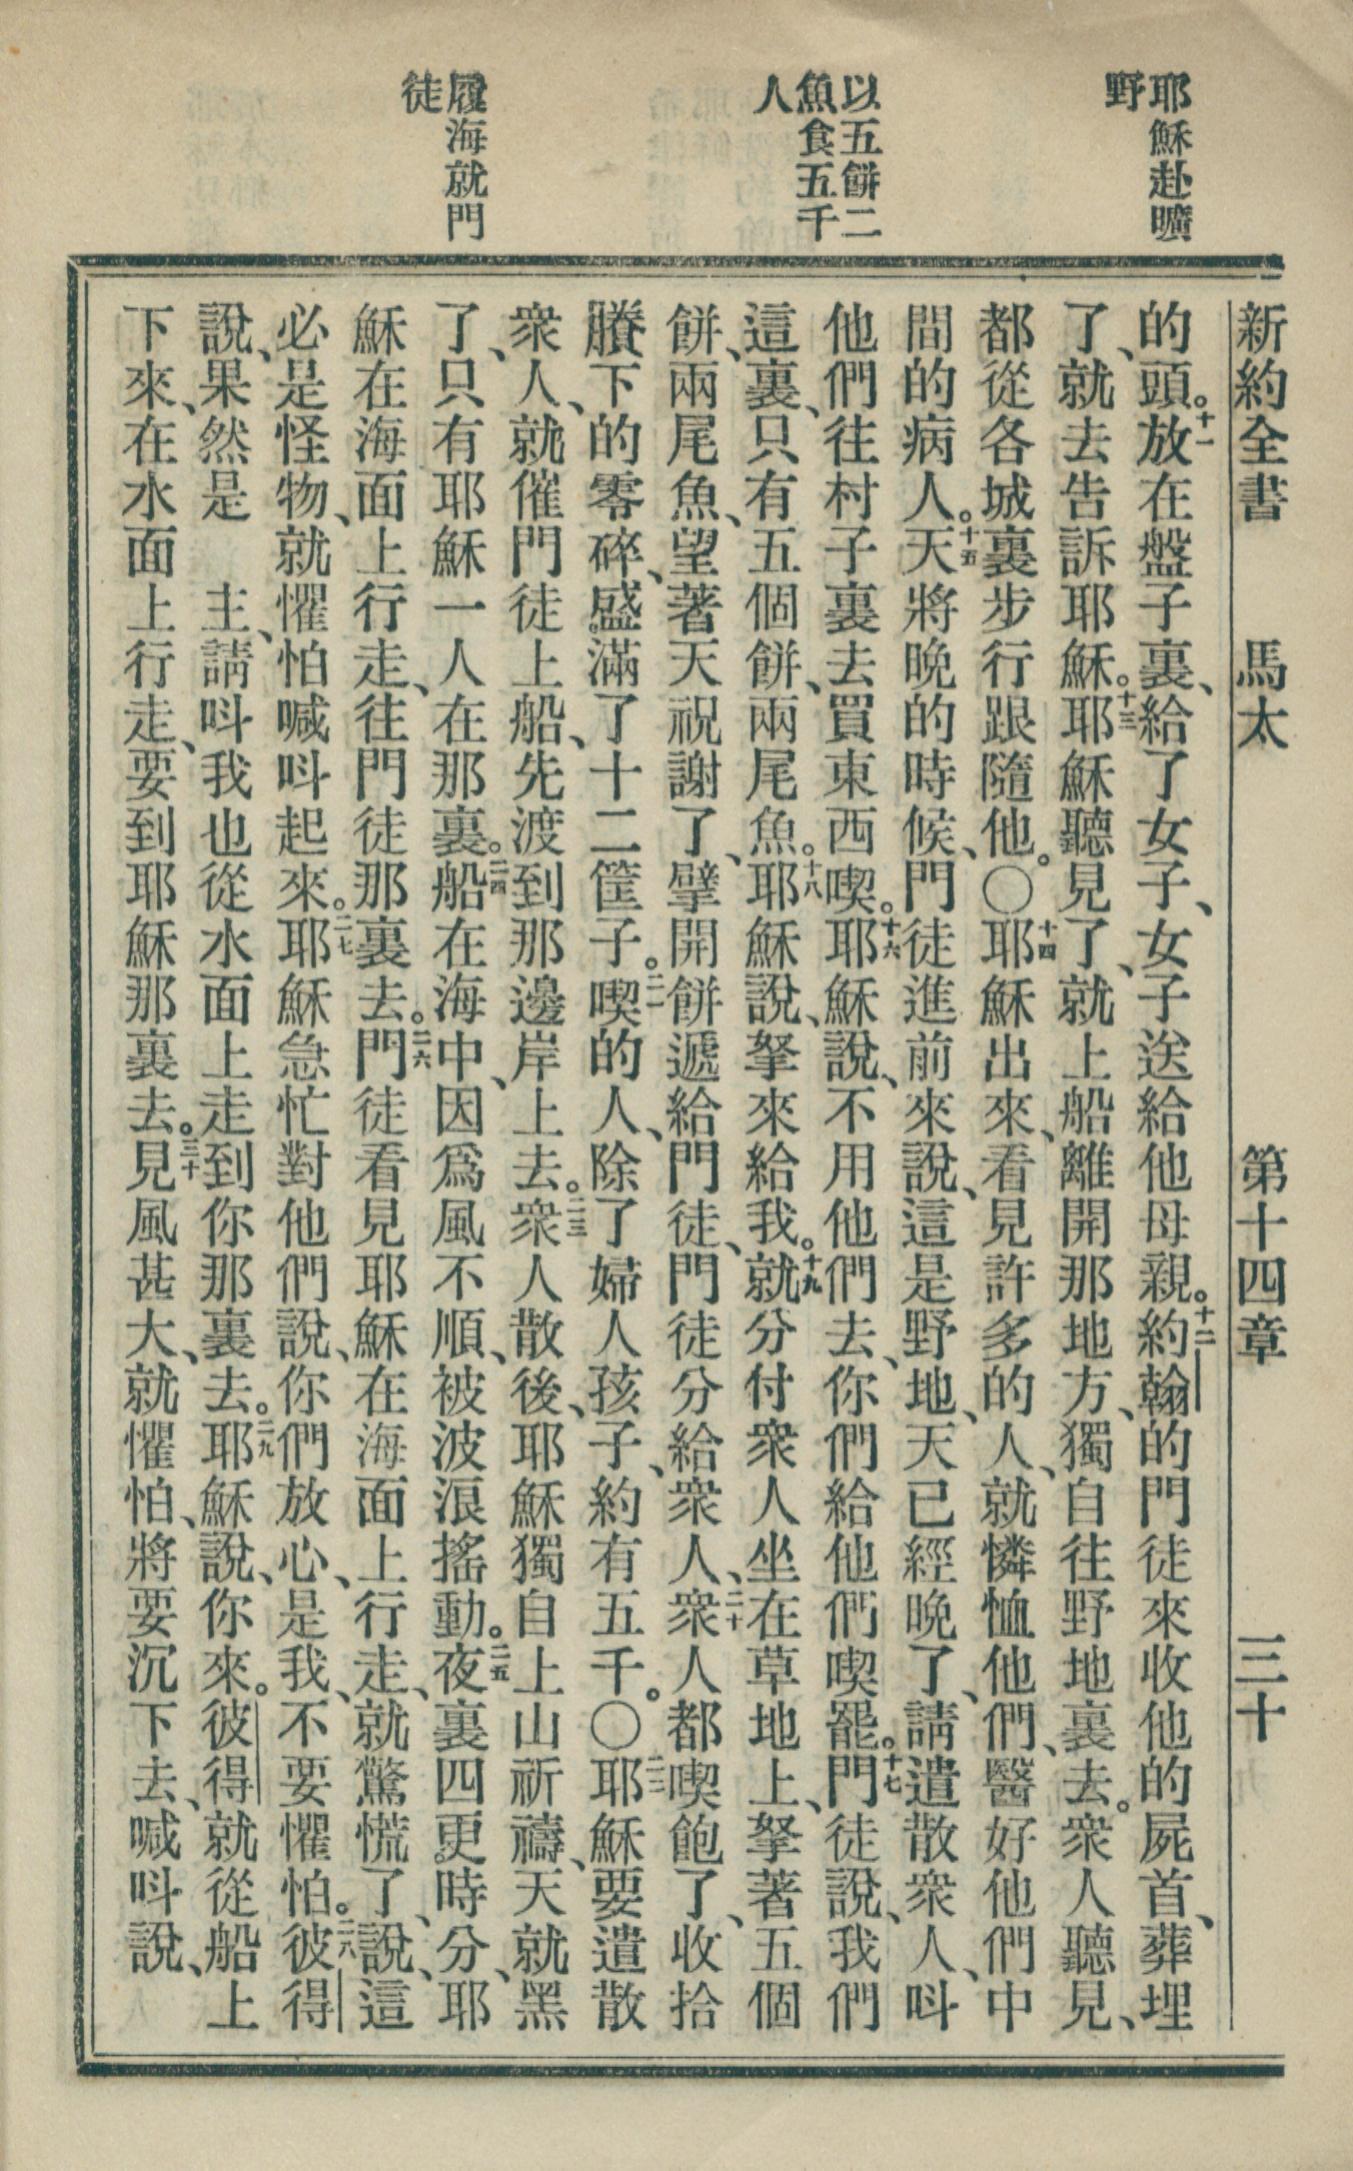 耶穌赴曠
野
以五餅二
魚食五千
人
履海就門
徒
新約全書 馬太 第十四章 三十
的頭。十一放在盤子裏、給了女子、女子送給他母親。十二約翰的門徒來收他的屍首、葬埋
了、就去告訴耶穌。十三耶穌聽見了、就上船離開那地方、獨自往野地裏去。衆人聽見、
都從各城裏步行跟隨他。〇十四耶穌出來、看見許多的人、就憐恤他們、醫好他們中
間的病人。十五天將晚的時候、門徒進前來說、這是野地、天已經晚了、請遣散衆人、呌
他們往村子裏去買東西喫。十六耶穌說、不用他們去、你們給他們喫罷。十七門徒說、我們
這裏、只有五個餅、兩尾魚。十八耶穌說、拏來給我。十九就分付衆人坐在草地上、拏著五個
餅、兩尾魚、望著天祝謝了、擘開餅遞給門徒、門徒分給衆人、二十衆人都喫飽了、收拾
賸下的零碎、盛滿了十二筐子。二一喫的人、除了婦人孩子、約有五千。〇二二耶穌要遣散
衆人、就催門徒上船、先渡到那邊岸上去。二三衆人散後、耶穌獨自上山祈禱、天就黑
了、只有耶穌一人在那裏。二四船在海中、因爲風不順、被波浪搖動。二五夜裏四更時分、耶
穌在海面上行走、往門徒那裏去。二六門徒看見耶穌在海面上行走、就驚慌了、說、這
必是怪物、就懼怕喊呌起來。二七耶穌急忙對他們說、你們放心、是我、不要懼怕。二八彼得
說、果然是 主、請呌我也從水面上走到你那裏去。二九耶穌說、你來。彼得就從船上
下來、在水面上行走、要到耶穌那裏去。三十見風甚大、就懼怕、將要沉下去、喊呌說、